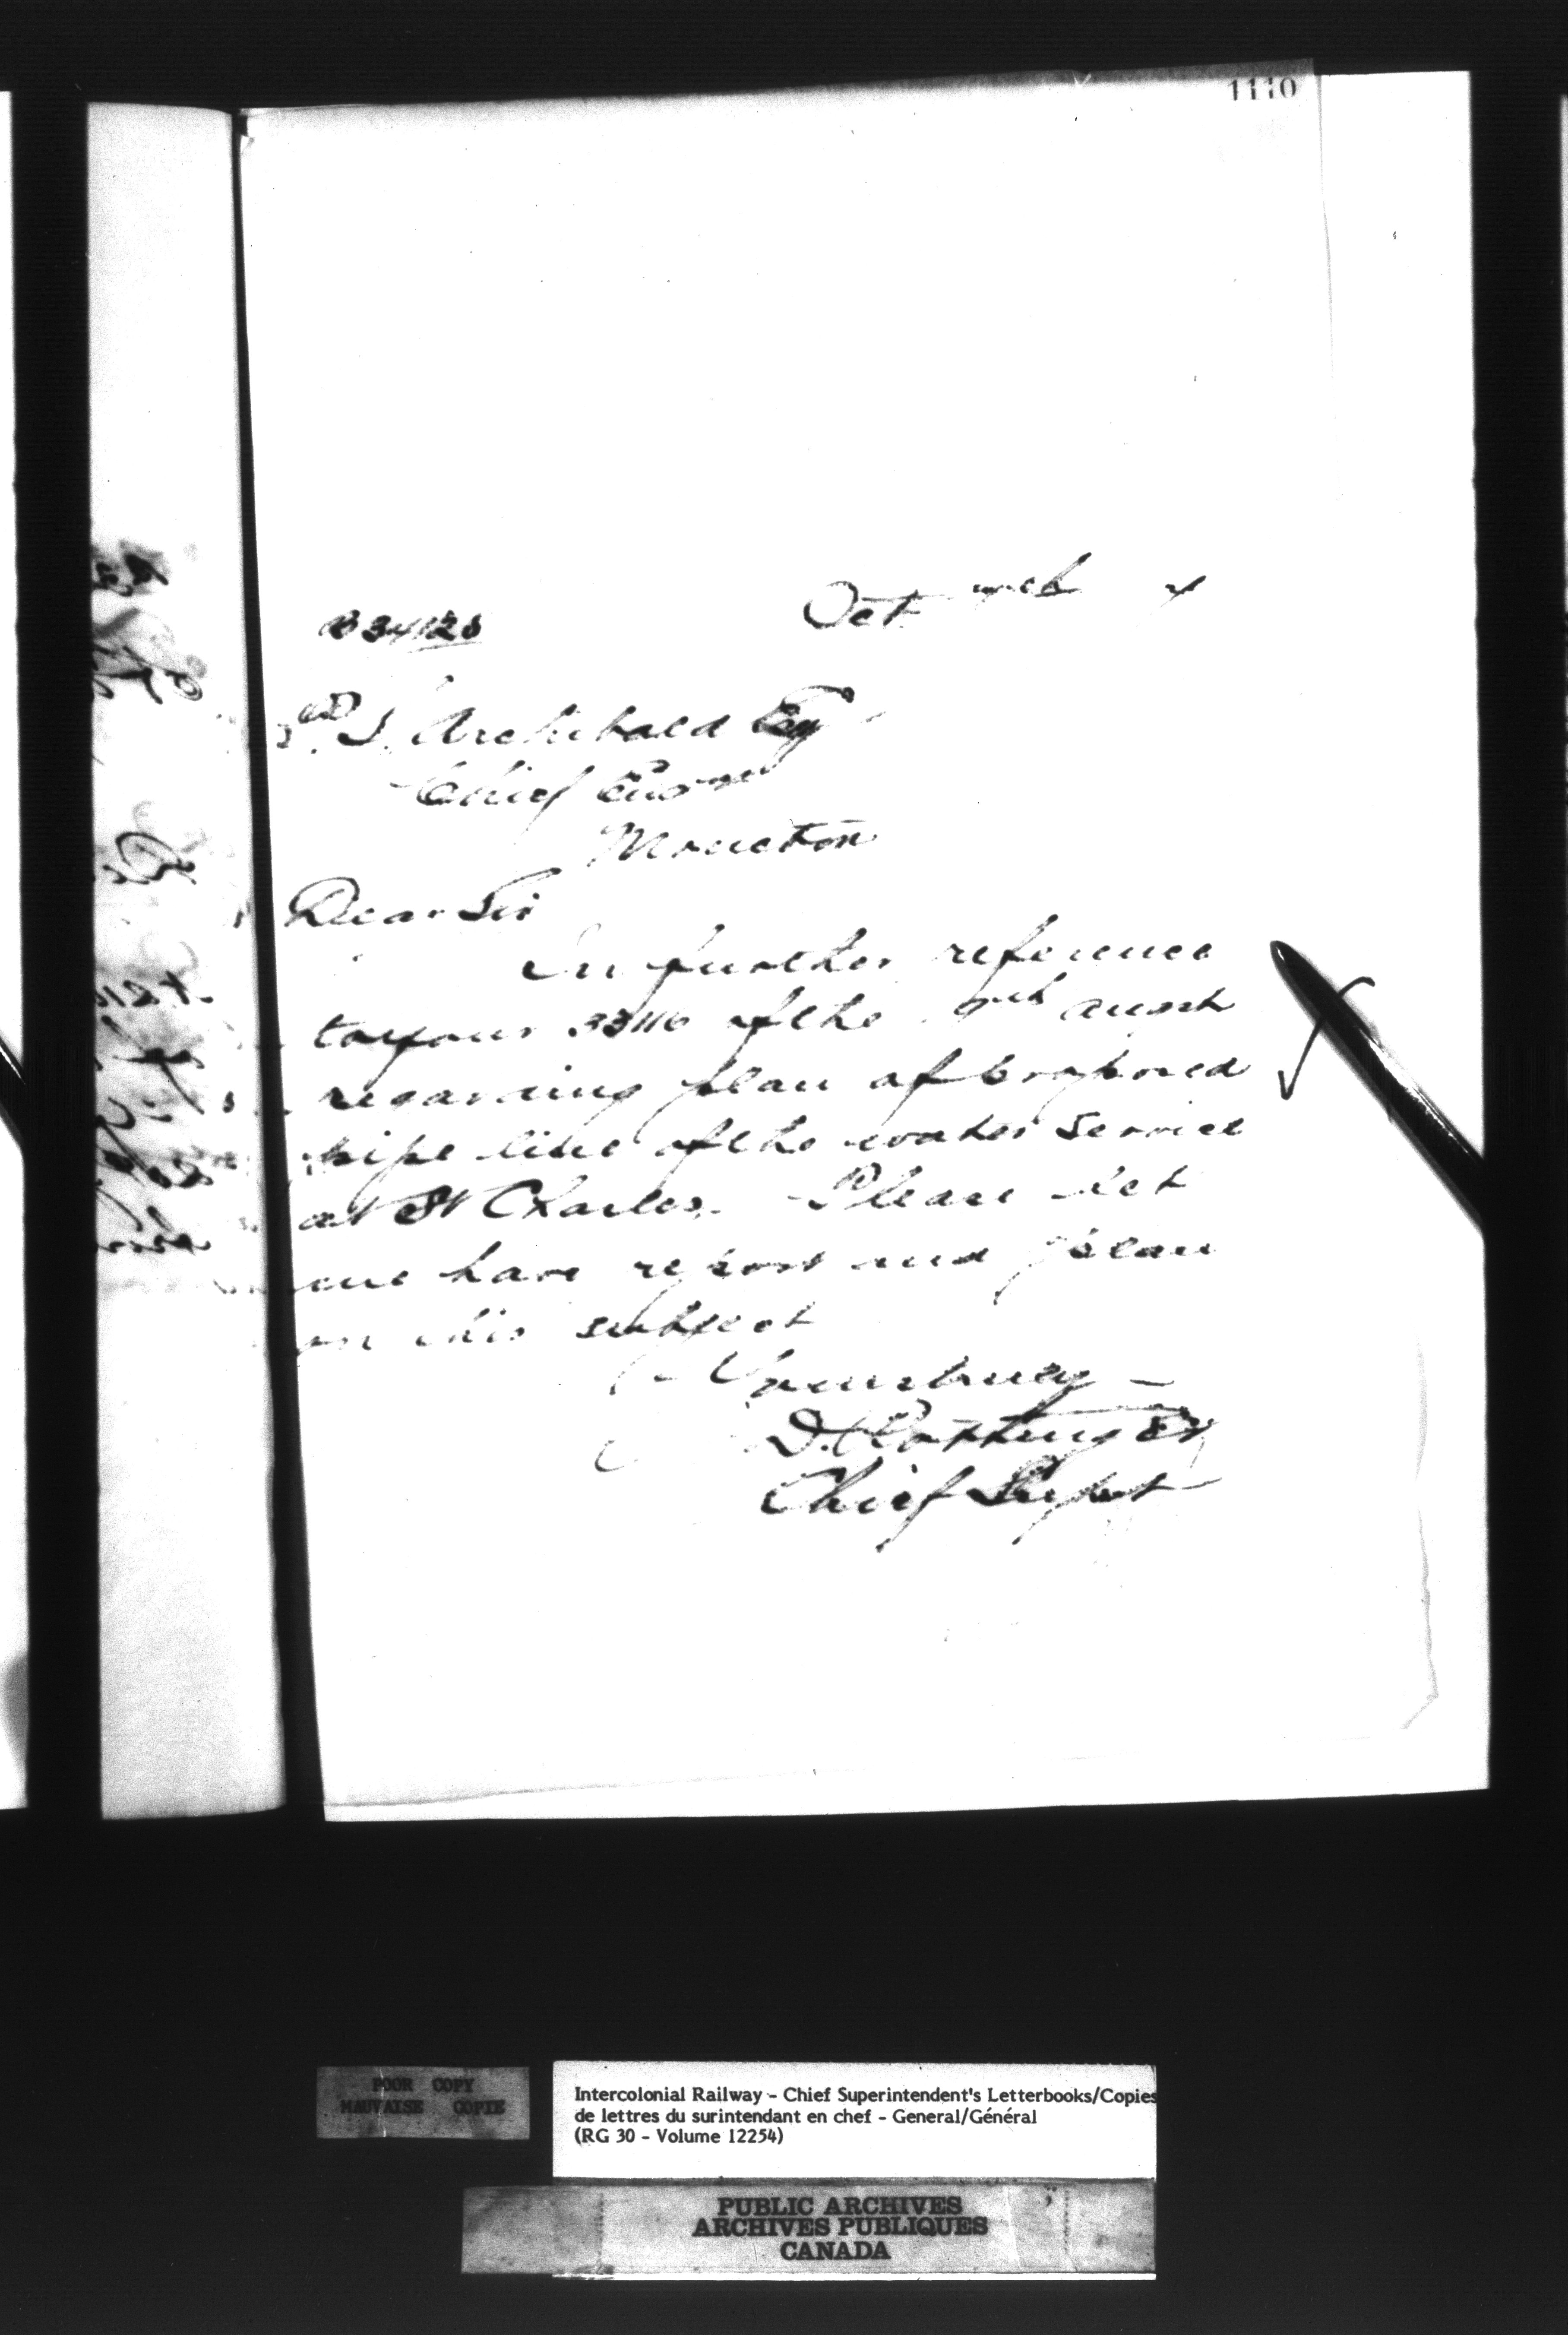 1110
Oct
834128
P. S. Archibald Esq
Chief Engr
Moncton
Dear Sir
In further reference
to your 33116 of the 9th August
regarding plan of proposed
pipe line of the water service
at St Charles. Please let
me have report and plan
on this subject
Yours truly
D. Pottinger
Chief Supt
POOR COPY
MAUVAISE COPIE
Intercolonial Railway - Chief Superintendent's Letterbooks/Copies
de lettres du surintendant en chef - General/Général
(RG 30 - Volume 12254)
PUBLIC ARCHIVES
ARCHIVES PUBLIQUES
CANADA